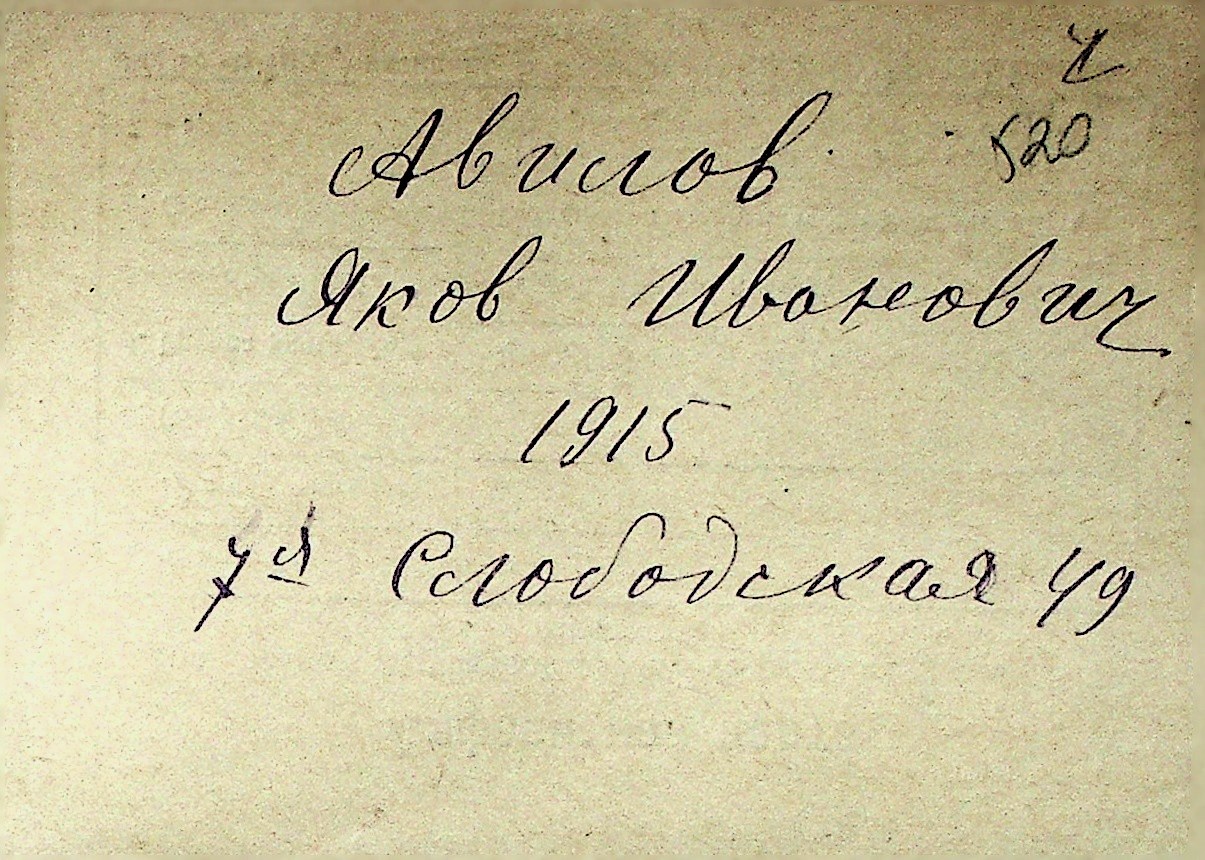 520
Авилов
Яков Иванович
1915
7я Слободская 49